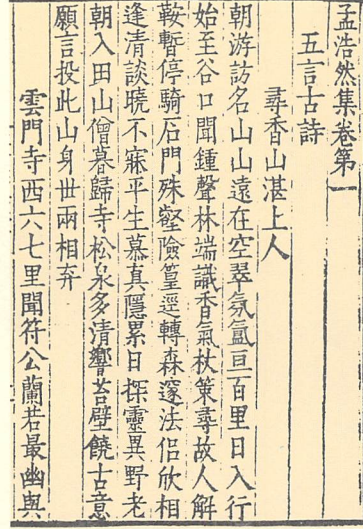 孟浩然集卷第一
五言古詩
尋香山湛上人
朝游訪名山山遠在空翠氛氳亘百里日入行
始至谷口聞鍾聲林端識香氣杖策尋故人解
鞍暫停騎石門殊壑險篁逕轉森邃法侶欣相
逢清談曉不寐平生慕真隱累日探靈異野老
朝入田山僧暮歸寺松泉多清響苔壁饒古意
願言投此山身世兩相弃
雲門寺西六七里聞符公蘭若最幽與